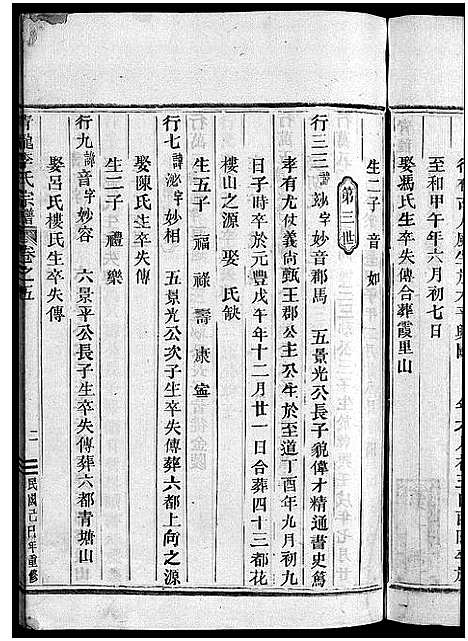 至和甲午年六月初七日
娶馮氏生卒失傳合葬霞里山
生二子 音 如
第三世
行三三 諱 字妙音郡馬 五景光公長子貌偉才精通書史篤
孝有尤仗義尚甄王郡公主公生於至道丁酉年九月初九
日子時卒於元豐戊午年十二月廿一日合葬四十三都花
樓山之源 娶 氏缺
生五子 福 祿 壽 康 寧
行七 諱泌字妙相 五景光公次子生卒失傳葬六都上向之源
娶陳氏生卒失傳
生二子 禮 樂
行九 諱音字妙容 六景平公長子生卒失傳葬六都青塘山
娶呂氏樓氏生卒失傳
青龍李氏宗譜 卷之五
二
民國己巳年重修